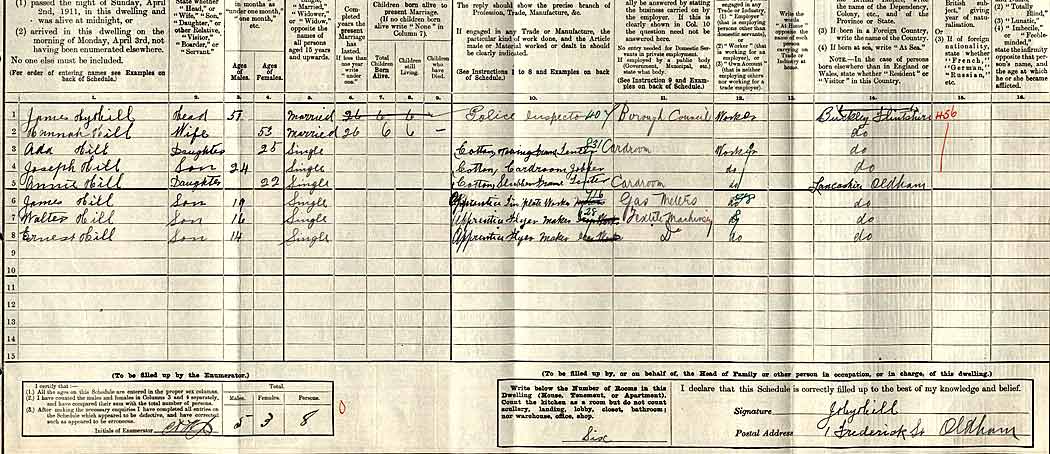 (1) passed the night of Sunday, April
2nd, 1911, in this dwelling and
was alive at midnight, or
(2) arrived in this dwelling on the
morning of Monday, April 3rd, not
having been enumerated elsewhere.
No one else must be included.
(For order of entering names see Examples on
back of Schedule.)
State whether
"Head," or
"Wife," "Son,"
"Daughter," or
other Relative,
"Visitor,"
"Boarder," or
"Servant."
in months as
"under one month,"
"one month,"
etc.
Ages
of
Males.
Ages
of
Females.
"Married,"
"Widower,"
or "Widow,"
opposite the
names of
all persons
aged 15 years
and upwards.
Com-
pleted
years the
present
Marriage
has
lasted.
If less than
one year
write
"under
one."
Children born alive to
present Marriage.
(If no children born
alive write "None" in
Column 7).
Total
Children
Born
Alive.
Children
still
Living.
Children
who
have
Died.
The reply should show the precise branch of
Profession, Trade, Manufacture, &c.
If engaged in any Trade or Manufacture, the
particular kind of work done, and the Article
made or Material worked or dealt in should
be clearly indicated.
(See Instructions 1 to 8 and Examples on back
of Schedule.)
ally be answered by stating
the business carried on by
the employer. If this is
clearly shown in Col. 10
the question need not be
answered here.
No entry needed for Domestic Ser-
vants in private employment.
If employed by a public body
(Government, Municipal, etc.)
state what body.
(See Instruction 9 and Exam-
ples on back of Schedule.)
engaged in any
Trade or Industry,
(1) "Employer"
(that is employing
persons other than
domestic servants),
or
(2) "Worker" (that
is working for an
employer), or
(3) "Own Account"
(that is neither
employing others
nor working for a
trade employer).
Write the
words
"At Home"
opposite the
name of
each
person
carrying on
Trade or
Industry at
home.
the name of the Dependency,
Colony, etc., and of the
Province or State.
(3) If born in a Foreign Country,
write the name of the Country.
(4) If born at sea, write "At Sea."
NOTE.—In the case of persons
born elsewhere than in England or
Wales, state whether "Resident" or
"Visitor" in this Country.
British sub-
ject," giving
year of natu-
ralisation.
(3) If of foreign
nationality,
state whether
"French,"
"German,"
"Russian,"
etc.
(2) "Totally
Blind,"
(3) "Lunatic,"
(4) "Imbecile"
or "Feeble-
minded,"
state the infirmity
opposite that per-
son's name, and
the age at which
he or she became
afflicted.
1. 2. 3. 4. 5. 6. 7. 8. 9. 10. 11. 12. 13. 14. 15. 16.
1 Head 57 Married 26 6 6 Police Inspector 407 Borough Council Worker Buckley Flintshire 456
2 Hannah Hill Wife 53 Married 26 6 6 – do
3 Ada Hill Daughter 25 Single Cotton Tenter Cardroom Worker do
4 Joseph Hill Son 24 Single Cotton Cardroom Jobber do do
5 Annie Hill Daughter 22 Single Cotton Slubber Frame Tenter Cardroom Lancashire Oldham
6 James Hill Son 19 Single Apprentice Tin plate Worker Gas Meters do
7 Walter Hill Son 16 Single Apprentice Flyer Maker Textile Machinery do
8 Ernest Hill Son 14 Single Apprentice Flyer Maker Do do do
9
10
11
12
13
14
15
(To be filled up by the Enumerator.)
I certify that:—
(1.) All the ages on this Schedule are entered in the proper sex columns.
(2.) I have counted the males and females in Columns 3 and 4 separately,
and have compared their sum with the total number of persons.
(3.) After making the necessary enquiries I have completed all entries on
the Schedule which appeared to be defective, and have corrected
such as appeared to be erroneous.
Initials of Enumerator
Total.
Males. Females. Persons.
5 3 8
0
(To be filled up by, or on behalf of, the Head of Family or other person in occupation, or in charge, of this dwelling.)
Write below the Number of Rooms in this
Dwelling (House, Tenement, or Apartment).
Count the kitchen as a room but do not count
scullery, landing, lobby, closet, bathroom;
nor warehouse, office, shop.
Six
I declare that this Schedule is correctly filled up to the best of my knowledge and belief.
Signature
Postal Address 1 Frederick St Oldham